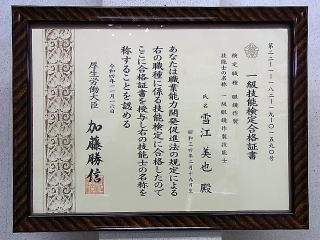 第二二-一-一八二-一九-〇一五九〇号
一級技能検定合格証書
検定職種 眼鏡作製
技能士の名称 一級眼鏡作製技能士
氏名 雪江 美也 殿
あなたは職業能力開発促進法の規定による
右の職種に係る技能検定に合格したので
ここに合格証書を授与し右の技能士の名称を
称することを認める
厚生労働大臣 加藤勝信